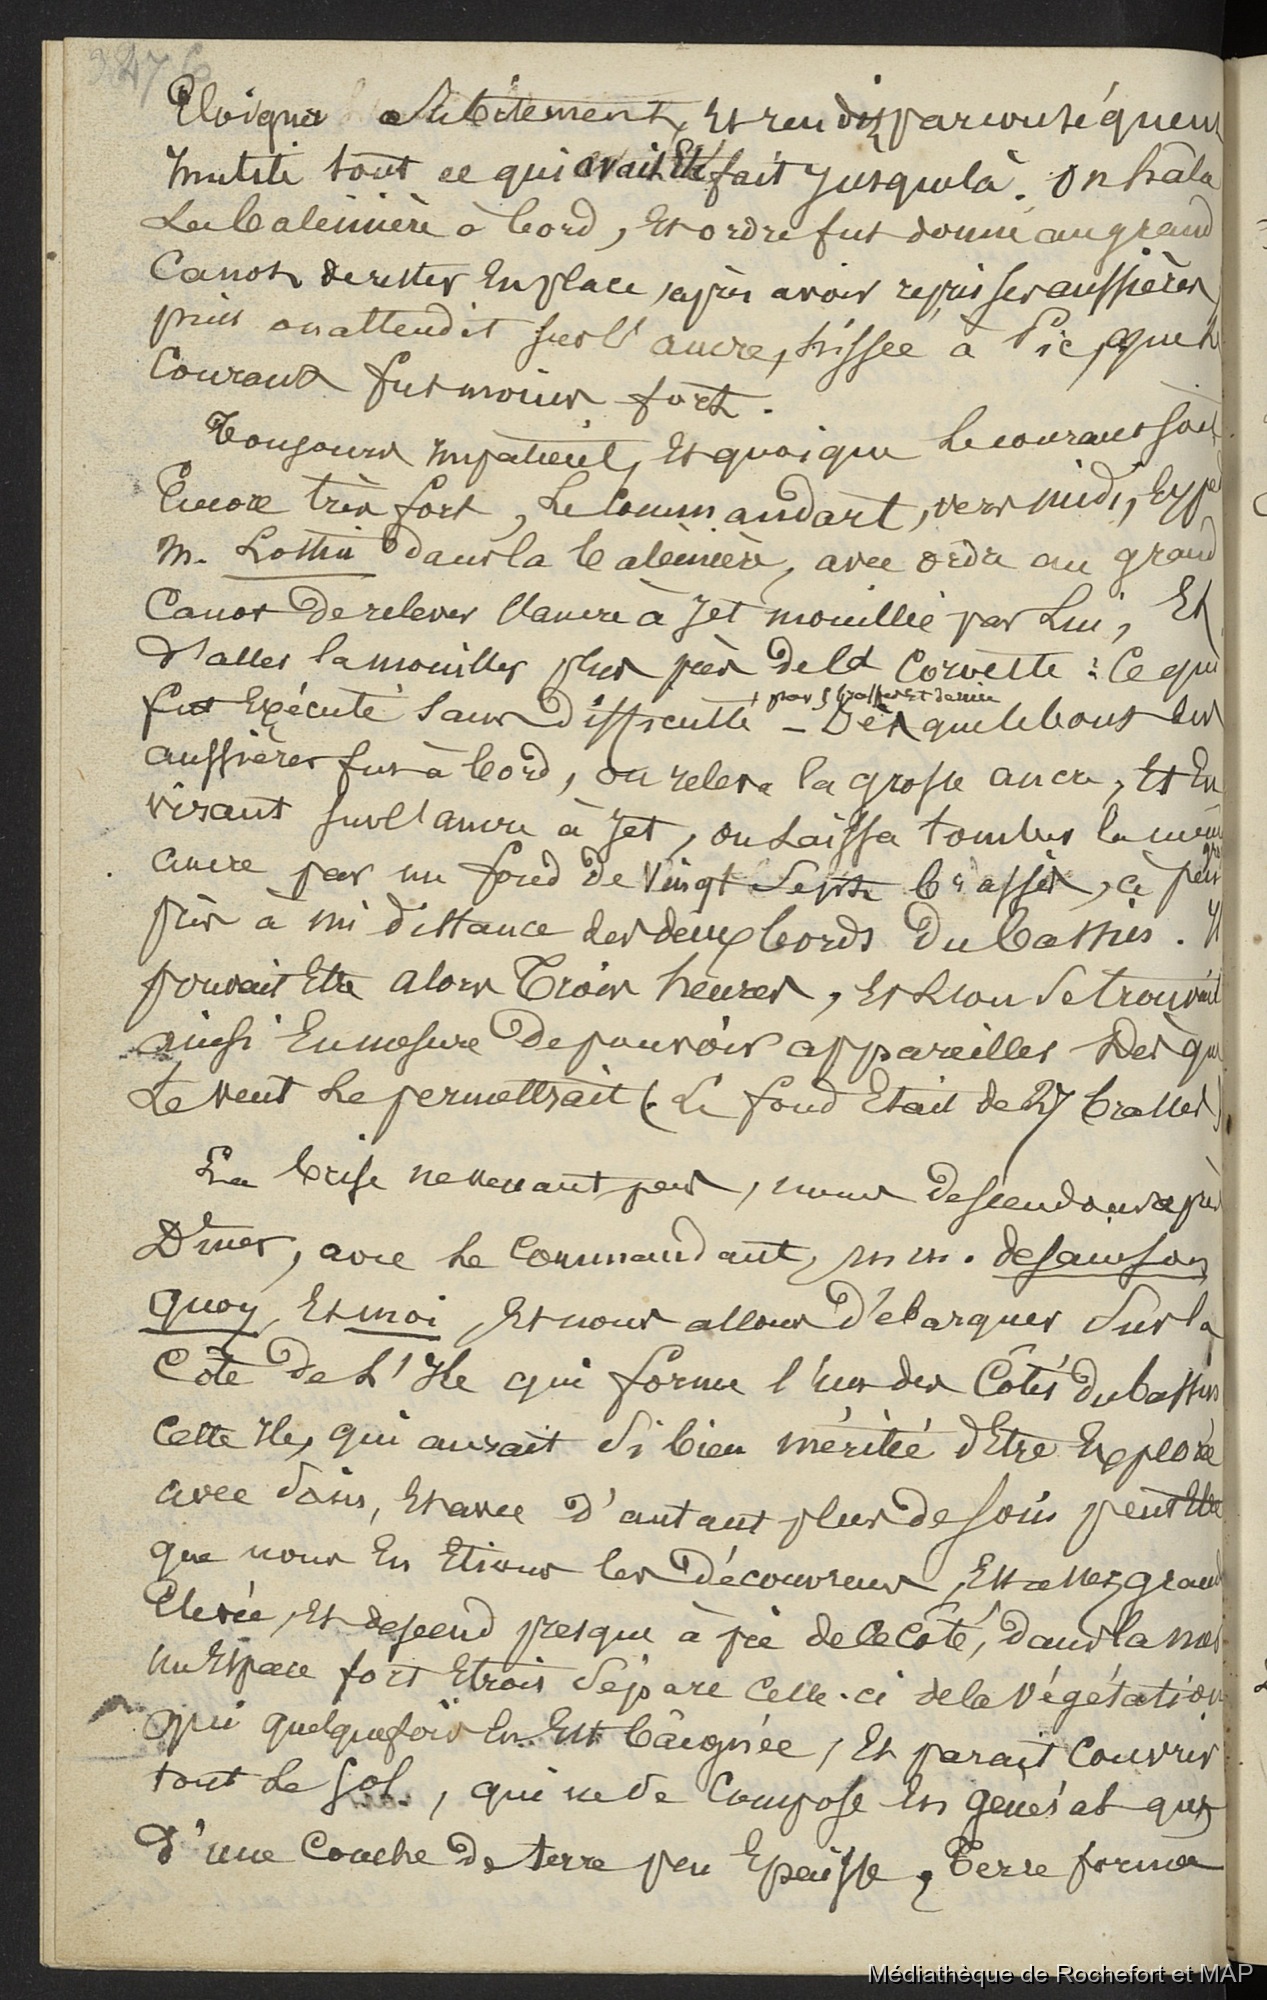 3476
Eloigner subitement, Et rendit par conséquent
Inutile tout ce qui avait Eté fait Jusque là. On hâla
La baleinière à bord, Et ordre fut donné au grand
Canot de rester En place, après avoir repris ses aussières,
puis on attendit sur l'ancre, hissée à Pic, que le
Courant fut moins fort.
Toujours impatient, Et quoique le courant soit
Encore très fort, Le Commandant, vers midi, Exped
M. Lottin dans la baleinière, avec ordre au grand
Canot De relever l'ancre à Jet mouillée par Lui, Et
d'aller la mouiller plus près de la Corvette : Ce qui
fut Exécuté sans Difficulté –
par 5 brasses et demie
Dès que le bout des
aussières fut à bord, on releva la grosse ancre, Et En
virant sur l'ancre à Jet, on Laissa tomber la même
ancre par un fond de vingt Sept brasses, à peu
près à mi distance des deux bords Du bassin. Il
pouvait Etre alors Trois heures, Et L'on se trouvait
ainsi En mesure De pouvoir appareiller Dès que
Le vent Le permettrait (. Le fond Etait de 27 brasses)
La brise ne venant pas, nous descendons après
Dîner, avec Le Commandant, m m. de sainson
quoy, Et moi, Et nous allons Débarquer Sur la
Côte De L'Ile qui forme l'un des Côtés du bassin
Cette Ile, qui aurait si bien mérité d'Etre Explorée
avec soin, Et avec D'autant plus de soin peut Etre
que nous En Etions les Découvreurs, Est assez grande
Elevée, Et descend presque à pic de ce Côté, Dans la mer
un Espace fort Etroit Sépare Celle-ci de la végétation
qui quelquefois En Est baignée, Et paraît Couvrir
tout Le Sol, qui ne se Compose En général que
D'une Couche De terre peu Epaisse, Terre formée
Médiathèque de Rochefort et MAP